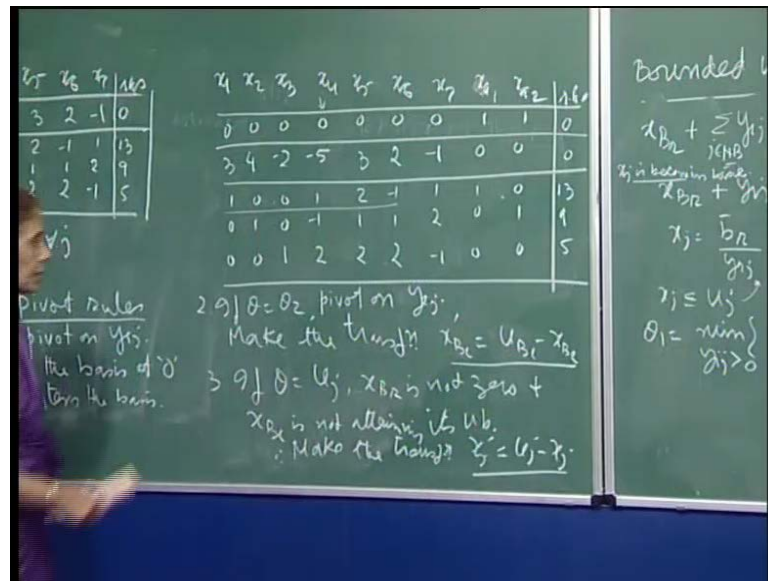 x5 x6 x7 | r.h.s
3 2 -1 | 0
2 -1 1 | 13
1 1 2 | 9
2 2 -1 | 5
∀j
Pivot rules
pivot on yrj.
the basis at '0'
ters the basis.
x1 x2 x3 x4 x5 x6 x7 xa1 xa2 | r.h.s
0 0 0 0 0 0 0 1 1 | 0
3 4 -2 -5 3 2 -1 0 0 | 0
1 0 0 1 2 -1 1 1 0 | 13
0 1 0 -1 1 1 2 0 1 | 9
0 0 1 2 2 2 -1 0 0 | 5
2. If θ = θ2, pivot on ylj.
Make the transfn xBl = uBl - xBl
3 If θ = uj, xBr is not zero +
xBl is not attaining its ub.
∴ Make the transfn xj' = uj - xj.
Bounded
xBr + Σ yrj
j∈NB
xj is becoming basic
xBr + yrj
xj = b̄r / yrj
xj ≤ uj
θ1 = min {
yij>0